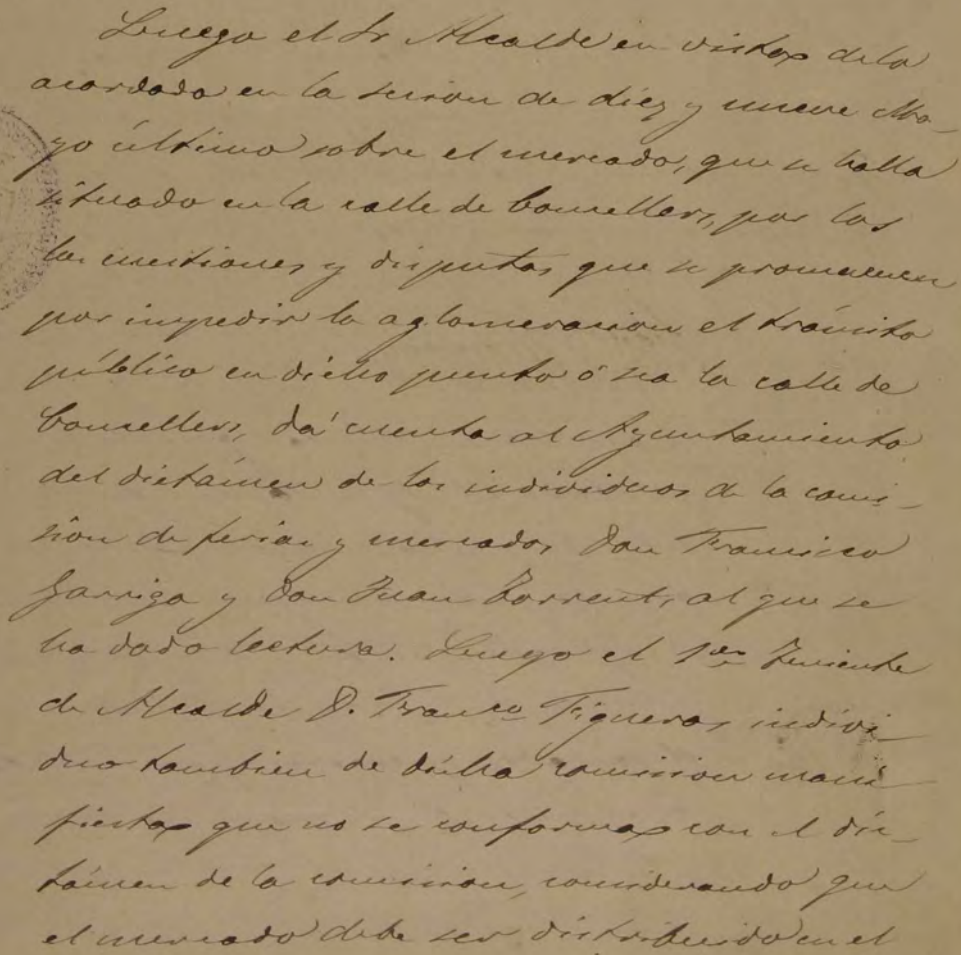 Luego el Sr Alcalde en vista de lo
acordado en la sesion de diez y nueve Ma-
yo último sobre el mercado, que se halla
situado en la calle de Consellers, por las
las cuestiones y disputas que se promueven
por impedir la aglomeracion el tránsito
público en dicho punto ó sea la calle de
Consellers, dá cuenta al Ayuntamiento
del dictámen de los individuos de la comi-
sion de ferias y mercados Don Francisco
Garriga y Don Juan Torrents, al que se
ha dado lectura. Luego el 1er Teniente
de Alcalde D. Franco Figueras indivi-
duo tambien de dicha comision mani
fiesta que no se conforma con el dic-
támen de la comision, considerando que
el mercado debe ser distribuido en el